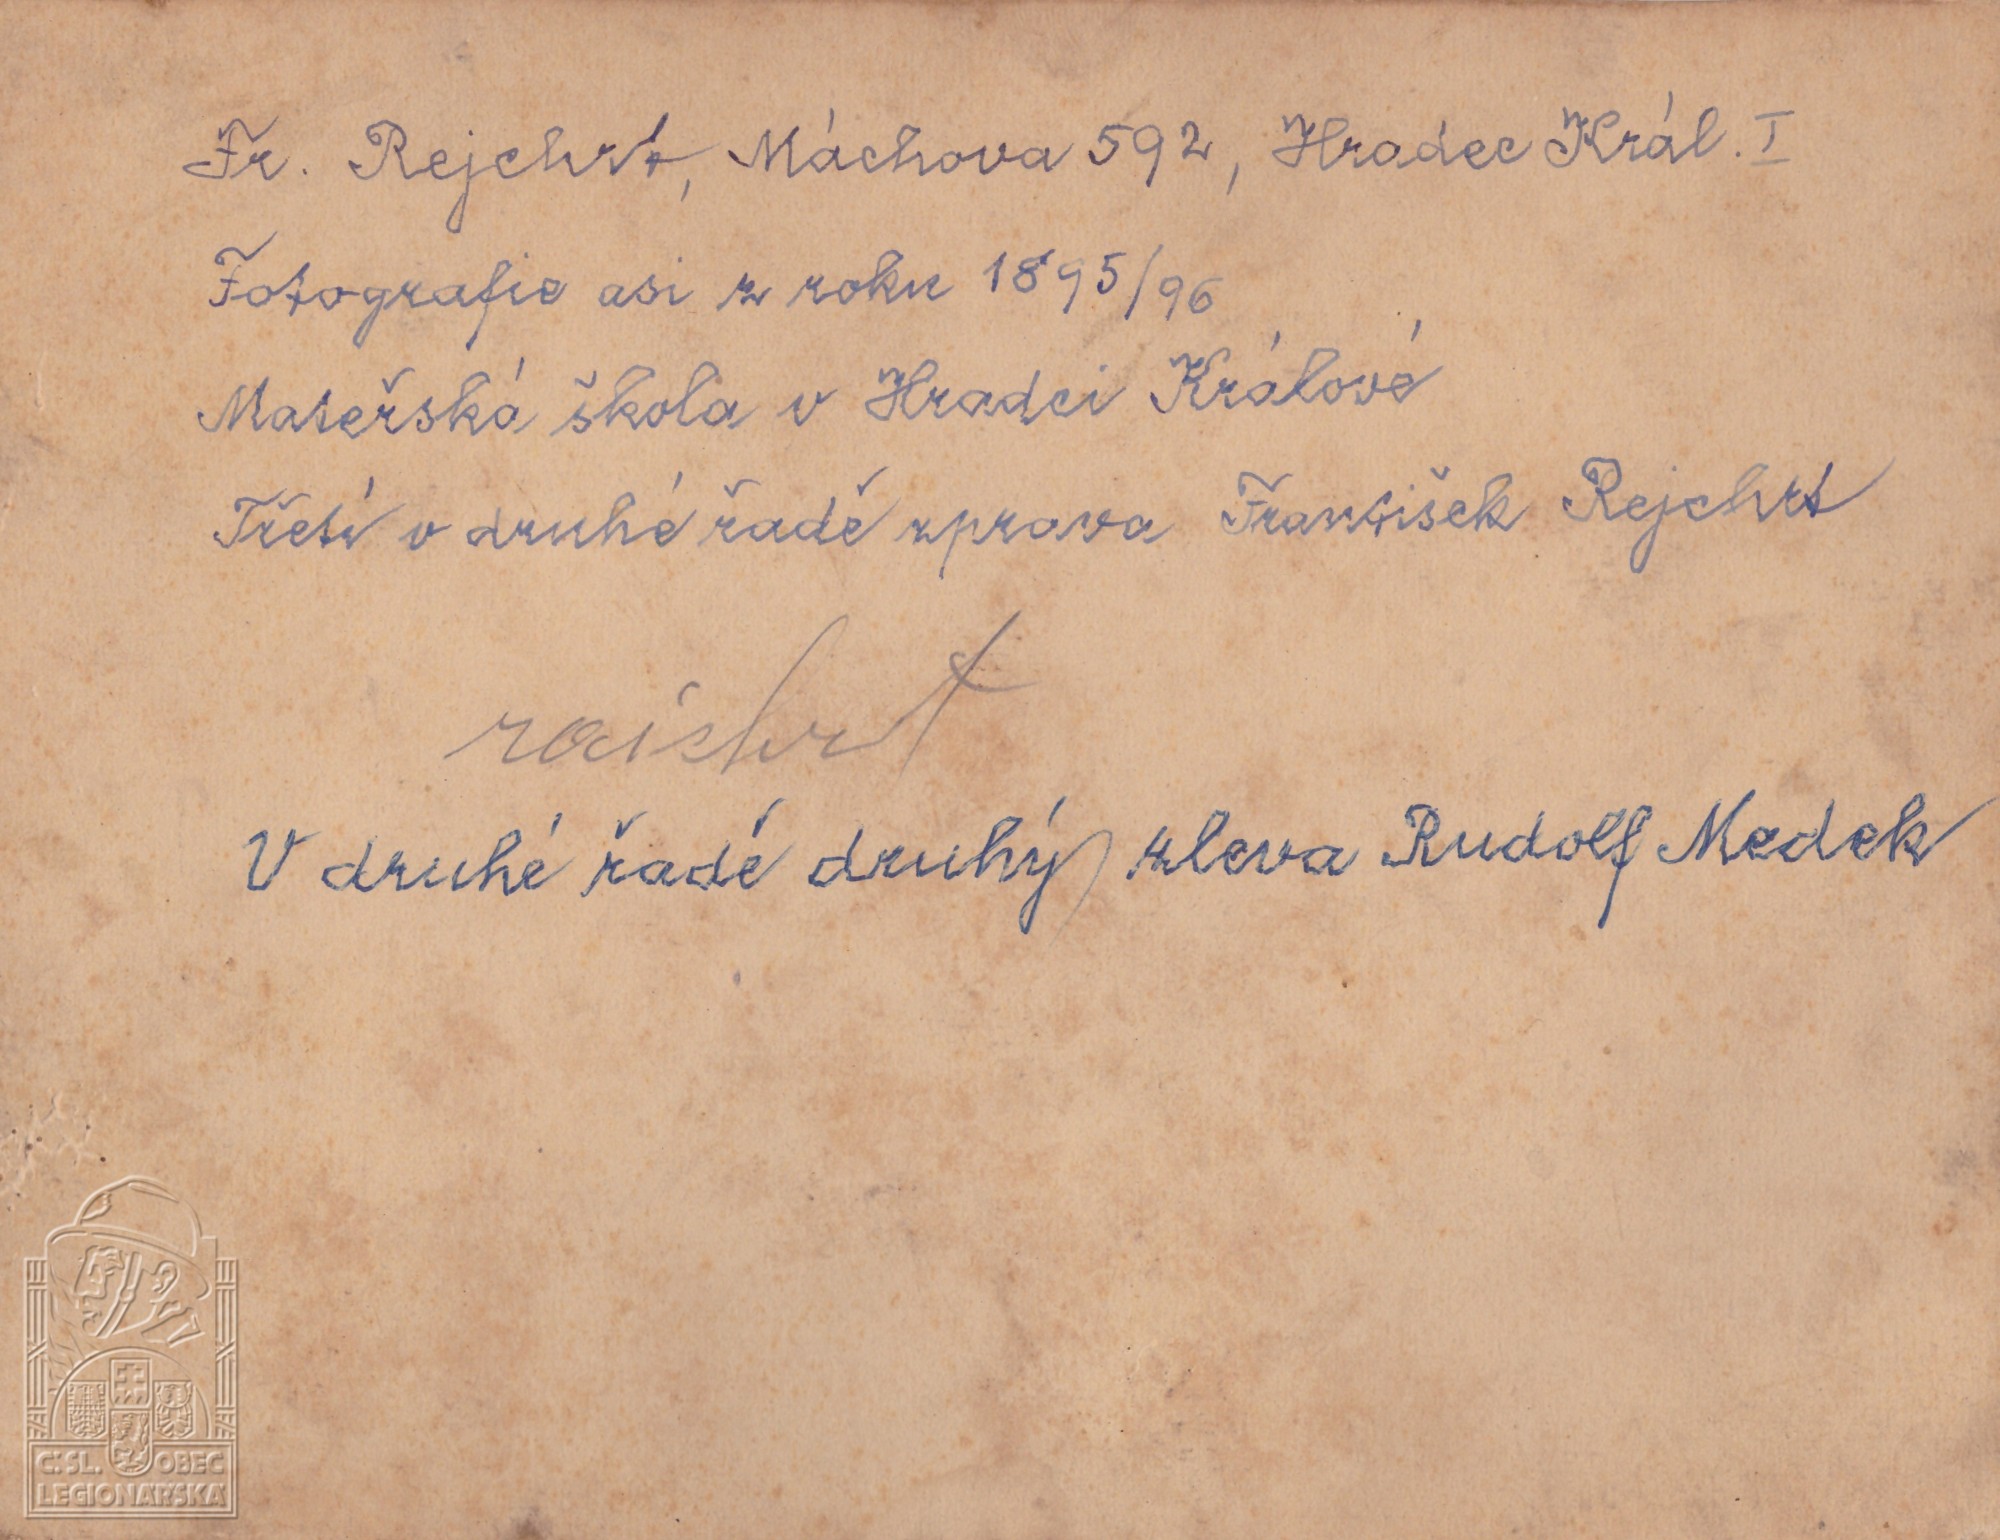 Fr. Rejchrt, Máchova 592, Hradec Král. I
Fotografie asi z roku 1895/96
Mateřská škola v Hradci Králové
Třetí v druhé řadě zprava František Rejchrt
raichrt
V druhé řadě druhý zleva Rudolf Medek
Č.SL. OBEC
LEGIONÁŘSKÁ